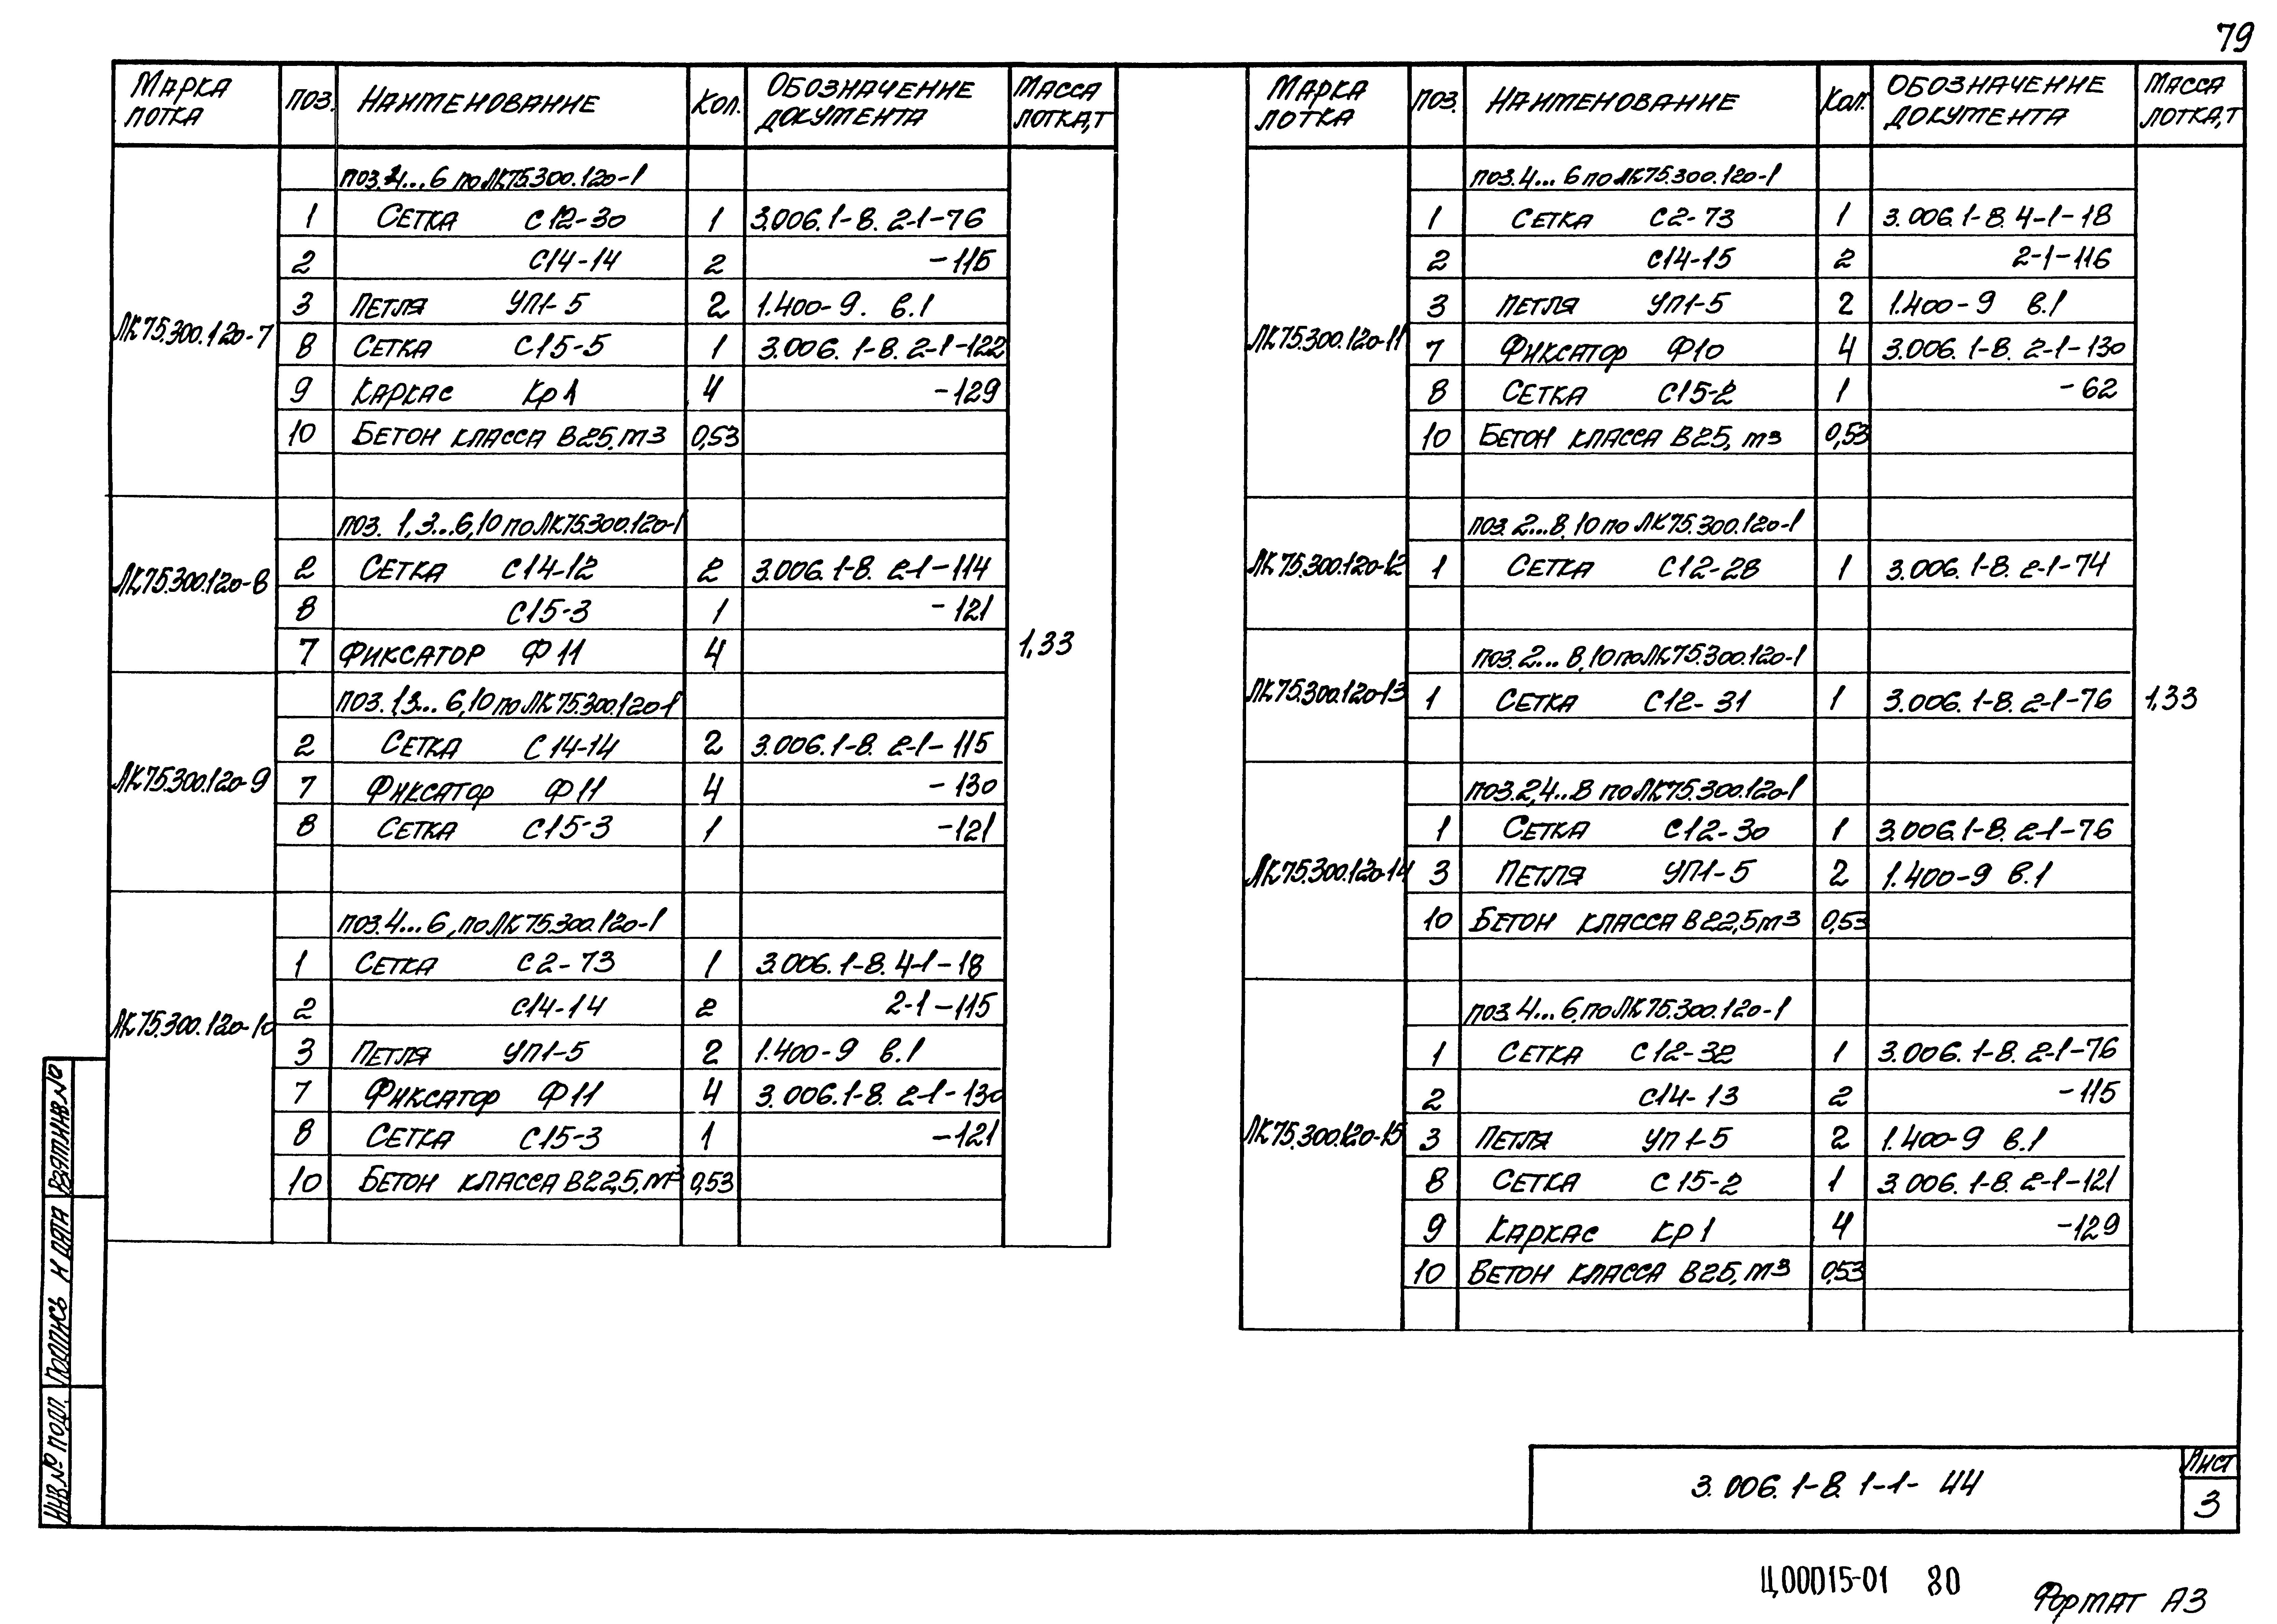 79
МАРКА ЛОТКА | ПОЗ. | НАИМЕНОВАНИЕ | КОЛ. | ОБОЗНАЧЕНИЕ ДОКУМЕНТА | МАССА ЛОТКА,Т
ЛК75.300.120-7
ПОЗ.4...6 по ЛК75.300.120-1
1 СЕТКА С12-30 1 3.006.1-8. 2-1-76
2 С14-14 2 -115
3 ПЕТЛЯ УП1-5 2 1.400-9. в.1
8 СЕТКА С15-5 1 3.006.1-8. 2-1-122
9 КАРКАС Кр1 4 -129
10 БЕТОН КЛАССА В25, м3 0,53
ЛК75.300.120-8
ПОЗ. 1,3...6,10 по ЛК75.300.120-1
2 СЕТКА С14-12 2 3.006.1-8. 2-1-114
8 С15-3 1 -121
7 ФИКСАТОР Ф11 4
1,33
ЛК75.300.120-9
ПОЗ. 1,3...6,10 по ЛК75.300.120-1
2 СЕТКА С14-14 2 3.006.1-8. 2-1-115
7 ФИКСАТОР Ф11 4 -130
8 СЕТКА С15-3 1 -121
ЛК75.300.120-10
ПОЗ.4...6, по ЛК75.300.120-1
1 СЕТКА С2-73 1 3.006.1-8. 4-1-18
2 С14-14 2 2-1-115
3 ПЕТЛЯ УП1-5 2 1.400-9 в.1
7 ФИКСАТОР Ф11 4 3.006.1-8. 2-1-130
8 СЕТКА С15-3 1 -121
10 БЕТОН КЛАССА В22,5, м3 0,53
МАРКА ЛОТКА | ПОЗ. | НАИМЕНОВАНИЕ | КОЛ. | ОБОЗНАЧЕНИЕ ДОКУМЕНТА | МАССА ЛОТКА,Т
ЛК75.300.120-11
ПОЗ.4...6 по ЛК75.300.120-1
1 СЕТКА С2-73 1 3.006.1-8. 4-1-18
2 С14-15 2 2-1-116
3 ПЕТЛЯ УП1-5 2 1.400-9 в.1
7 ФИКСАТОР Ф10 4 3.006.1-8. 2-1-130
8 СЕТКА С15-2 1 -62
10 БЕТОН КЛАССА В25, м3 0,53
ЛК75.300.120-12
ПОЗ.2...8,10 по ЛК75.300.120-1
1 СЕТКА С12-28 1 3.006.1-8. 2-1-74
ЛК75.300.120-13
ПОЗ.2...8,10 по ЛК75.300.120-1
1 СЕТКА С12-31 1 3.006.1-8. 2-1-76
1,33
ЛК75.300.120-14
ПОЗ.2,4...8 по ЛК75.300.120-1
1 СЕТКА С12-30 1 3.006.1-8. 2-1-76
3 ПЕТЛЯ УП1-5 2 1.400-9 в.1
10 БЕТОН КЛАССА В22,5 м3 0,53
ЛК75.300.120-15
ПОЗ.4...6, по ЛК75.300.120-1
1 СЕТКА С12-32 1 3.006.1-8. 2-1-76
2 С14-13 2 -115
3 ПЕТЛЯ УП1-5 2 1.400-9 в.1
8 СЕТКА С15-2 1 3.006.1-8. 2-1-121
9 КАРКАС Кр1 4 -129
10 БЕТОН КЛАССА В25, м3 0,53
ВЗЯТ ИНВ.№
ПОДПИСЬ И ДАТА
ИНВ.№ ПОДЛ.
3.006.1-8. 1-1-44
ЛИСТ
3
Ц00015-01 80
ФОРМАТ А3